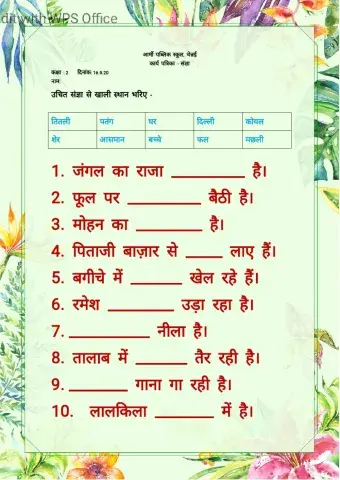 dit with WPS Office
आर्मी पब्लिक स्कूल, चेन्नई
कार्य पत्रिका - संज्ञा
कक्षा : 2 दिनांक 16.9.20
नाम
उचित संज्ञा से खाली स्थान भरिए -
तितली पतंग घर दिल्ली कोयल
शेर आसमान बच्चे फल मछली
1. जंगल का राजा __________ है।
2. फूल पर __________ बैठी है।
3. मोहन का _________ है।
4. पिताजी बाज़ार से _____ लाए हैं।
5. बगीचे में _______ खेल रहे हैं।
6. रमेश _________ उड़ा रहा है।
7. ___________ नीला है।
8. तालाब में _______ तैर रही है।
9. ________ गाना गा रही है।
10. लालकिला ________ में है।